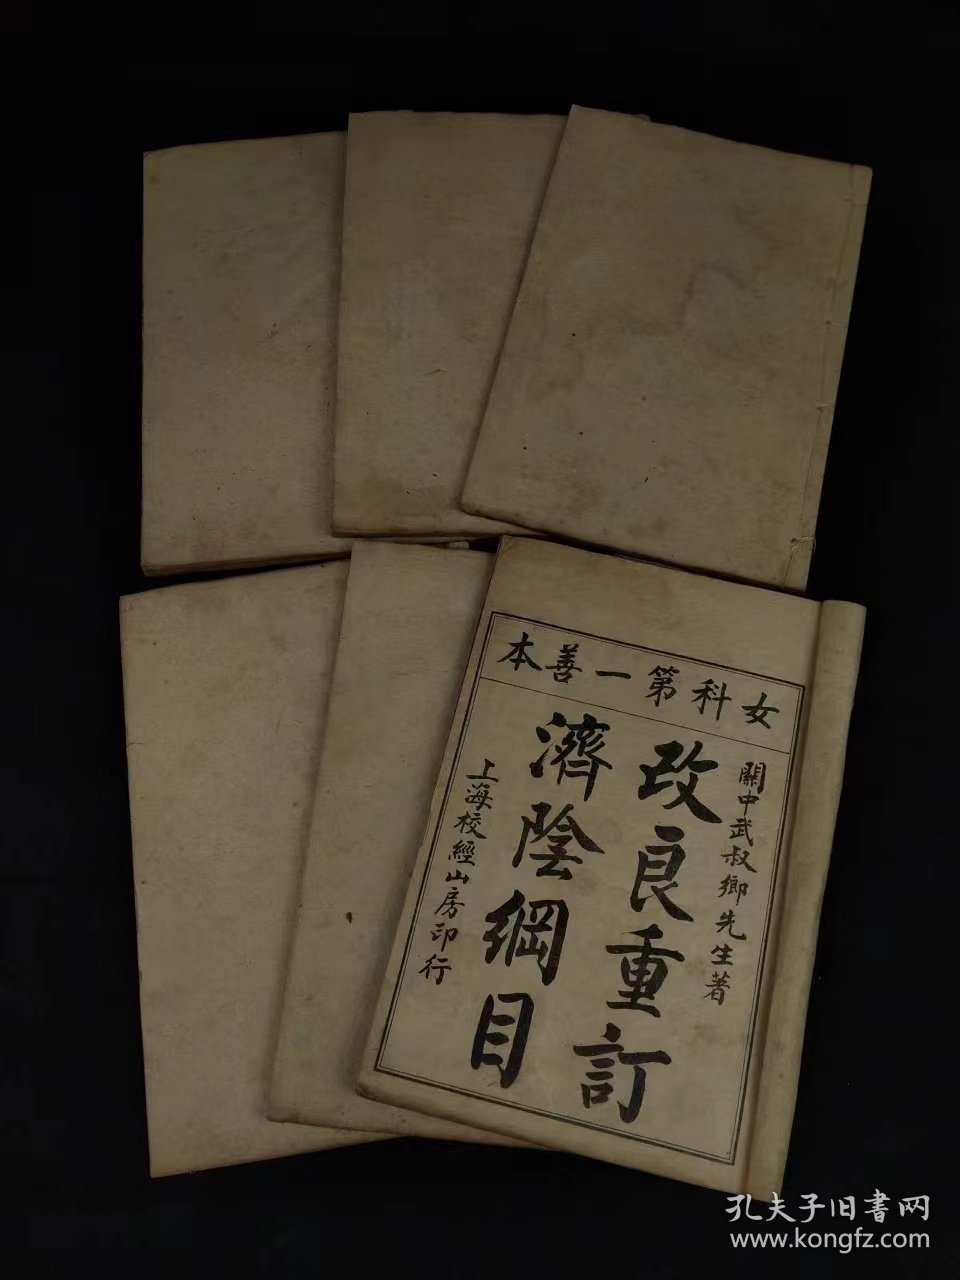 女科第一善本
關中武叔卿先生著
改良重訂
濟陰綱目
上海校經山房印行
孔夫子旧書网
www.kongfz.com